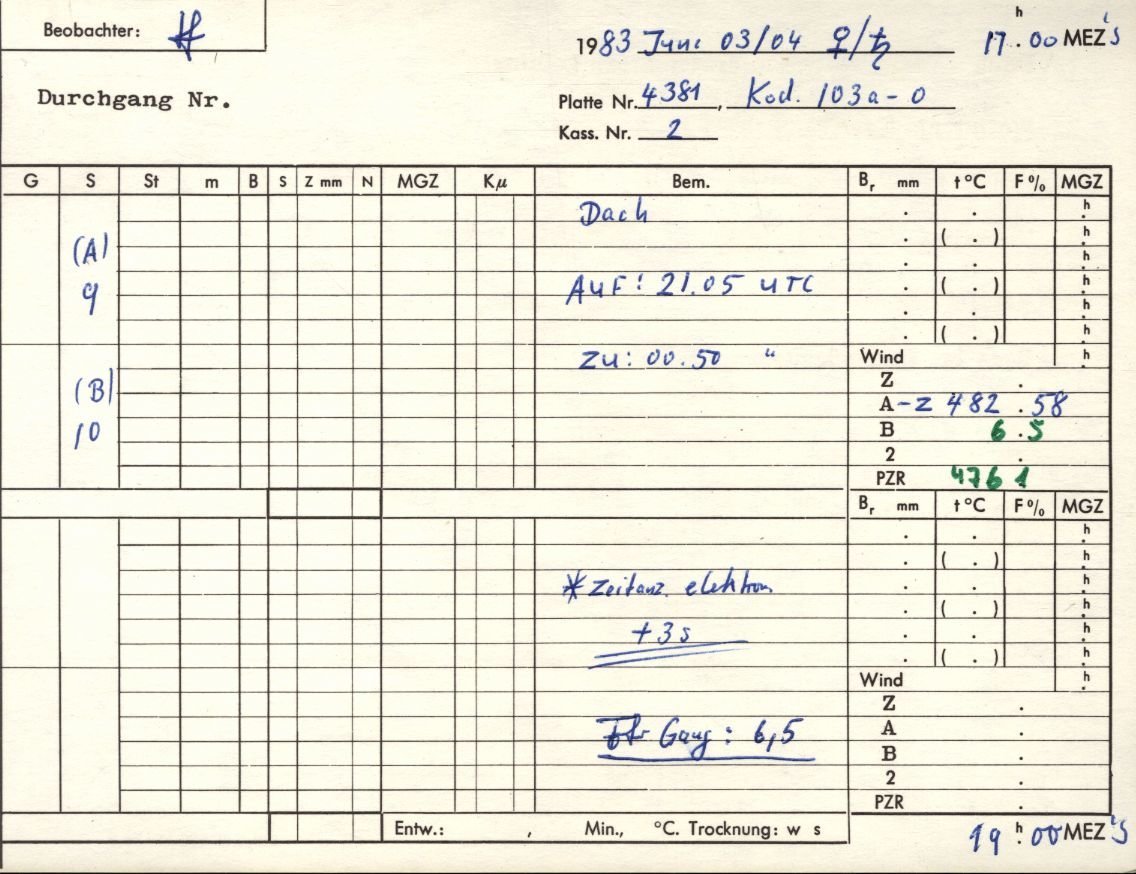 Beobachter:
1983 Juni 03/04 ♀/♄ 17h.00 MEZ's
Durchgang Nr.
Platte Nr. 4381, Kod. 103a-0
Kass. Nr. 2
G S St m B S Z mm N MGZ Kμ Bem. Br mm t °C F % MGZ
Dach . . h
(A) . ( . ) h
. . h
9 Auf: 21.05 UTC . ( . ) h
. . h
. ( . ) h
Zu: 00.50 " Wind h
(B) Z .
A-Z 482.58
10 B 6.5
2 .
PZR 4761
Br mm t °C F % MGZ
. . h
. ( . ) h
* Zeitanz. elektron . . h
. ( . ) h
+3s . . h
. ( . ) h
Wind h
Z .
Gang: 6,5 A .
B .
2 .
PZR .
Entw.: , Min., °C. Trocknung: w s
19h.00 MEZ's